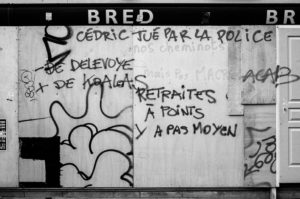 BRED
BR
CÉDRIC TUÉ PAR LA POLICE
nos cheminots
- DE DELEVOYE
+ DE KOALAS
MACRON
ACAB
RETRAITES
À POINTS
Y A PAS MOYEN